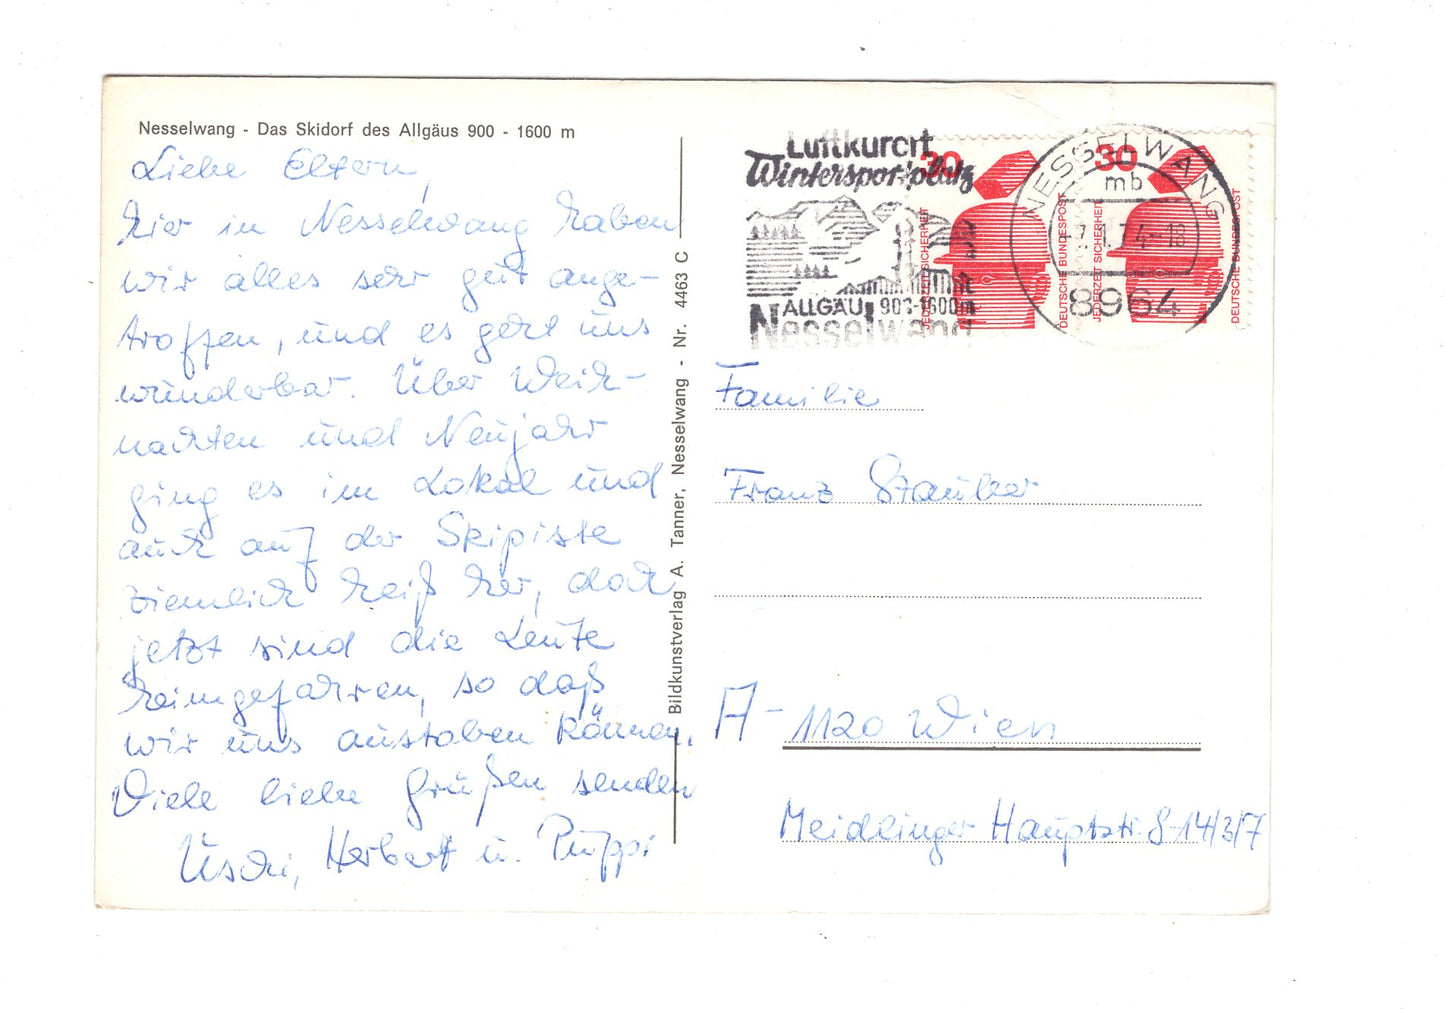 Nesselwang - Das Skidorf des Allgäus 900 - 1600 m
Liebe Eltern,
hier in Nesselwang haben
wir alles sehr gut ange-
troffen, und es geht uns
wunderbar. Über Weih-
nachten und Neujahr
ging es im Lokal und
auch auf der Skipiste
ziemlich heiß her, doch
jetzt sind die Leute
heimgefahren, so daß
wir uns austoben können.
Viele liebe Grüßen senden
Uschi, Herbert u. Puppi
Bildkunstverlag A. Tanner, Nesselwang - Nr. 4463 C
Luftkurort
Wintersportplatz
ALLGÄU 900-1600m
Nesselwang
NESSELWANG
mb
74-18
8964
30
JEDERZEIT SICHERHEIT
DEUTSCHE BUNDESPOST
30
JEDERZEIT SICHERHEIT
DEUTSCHE BUNDESPOST
Familie
Franz Stauber
A-1120 Wien
Meidlinger Hauptstr. 8-14/3/7